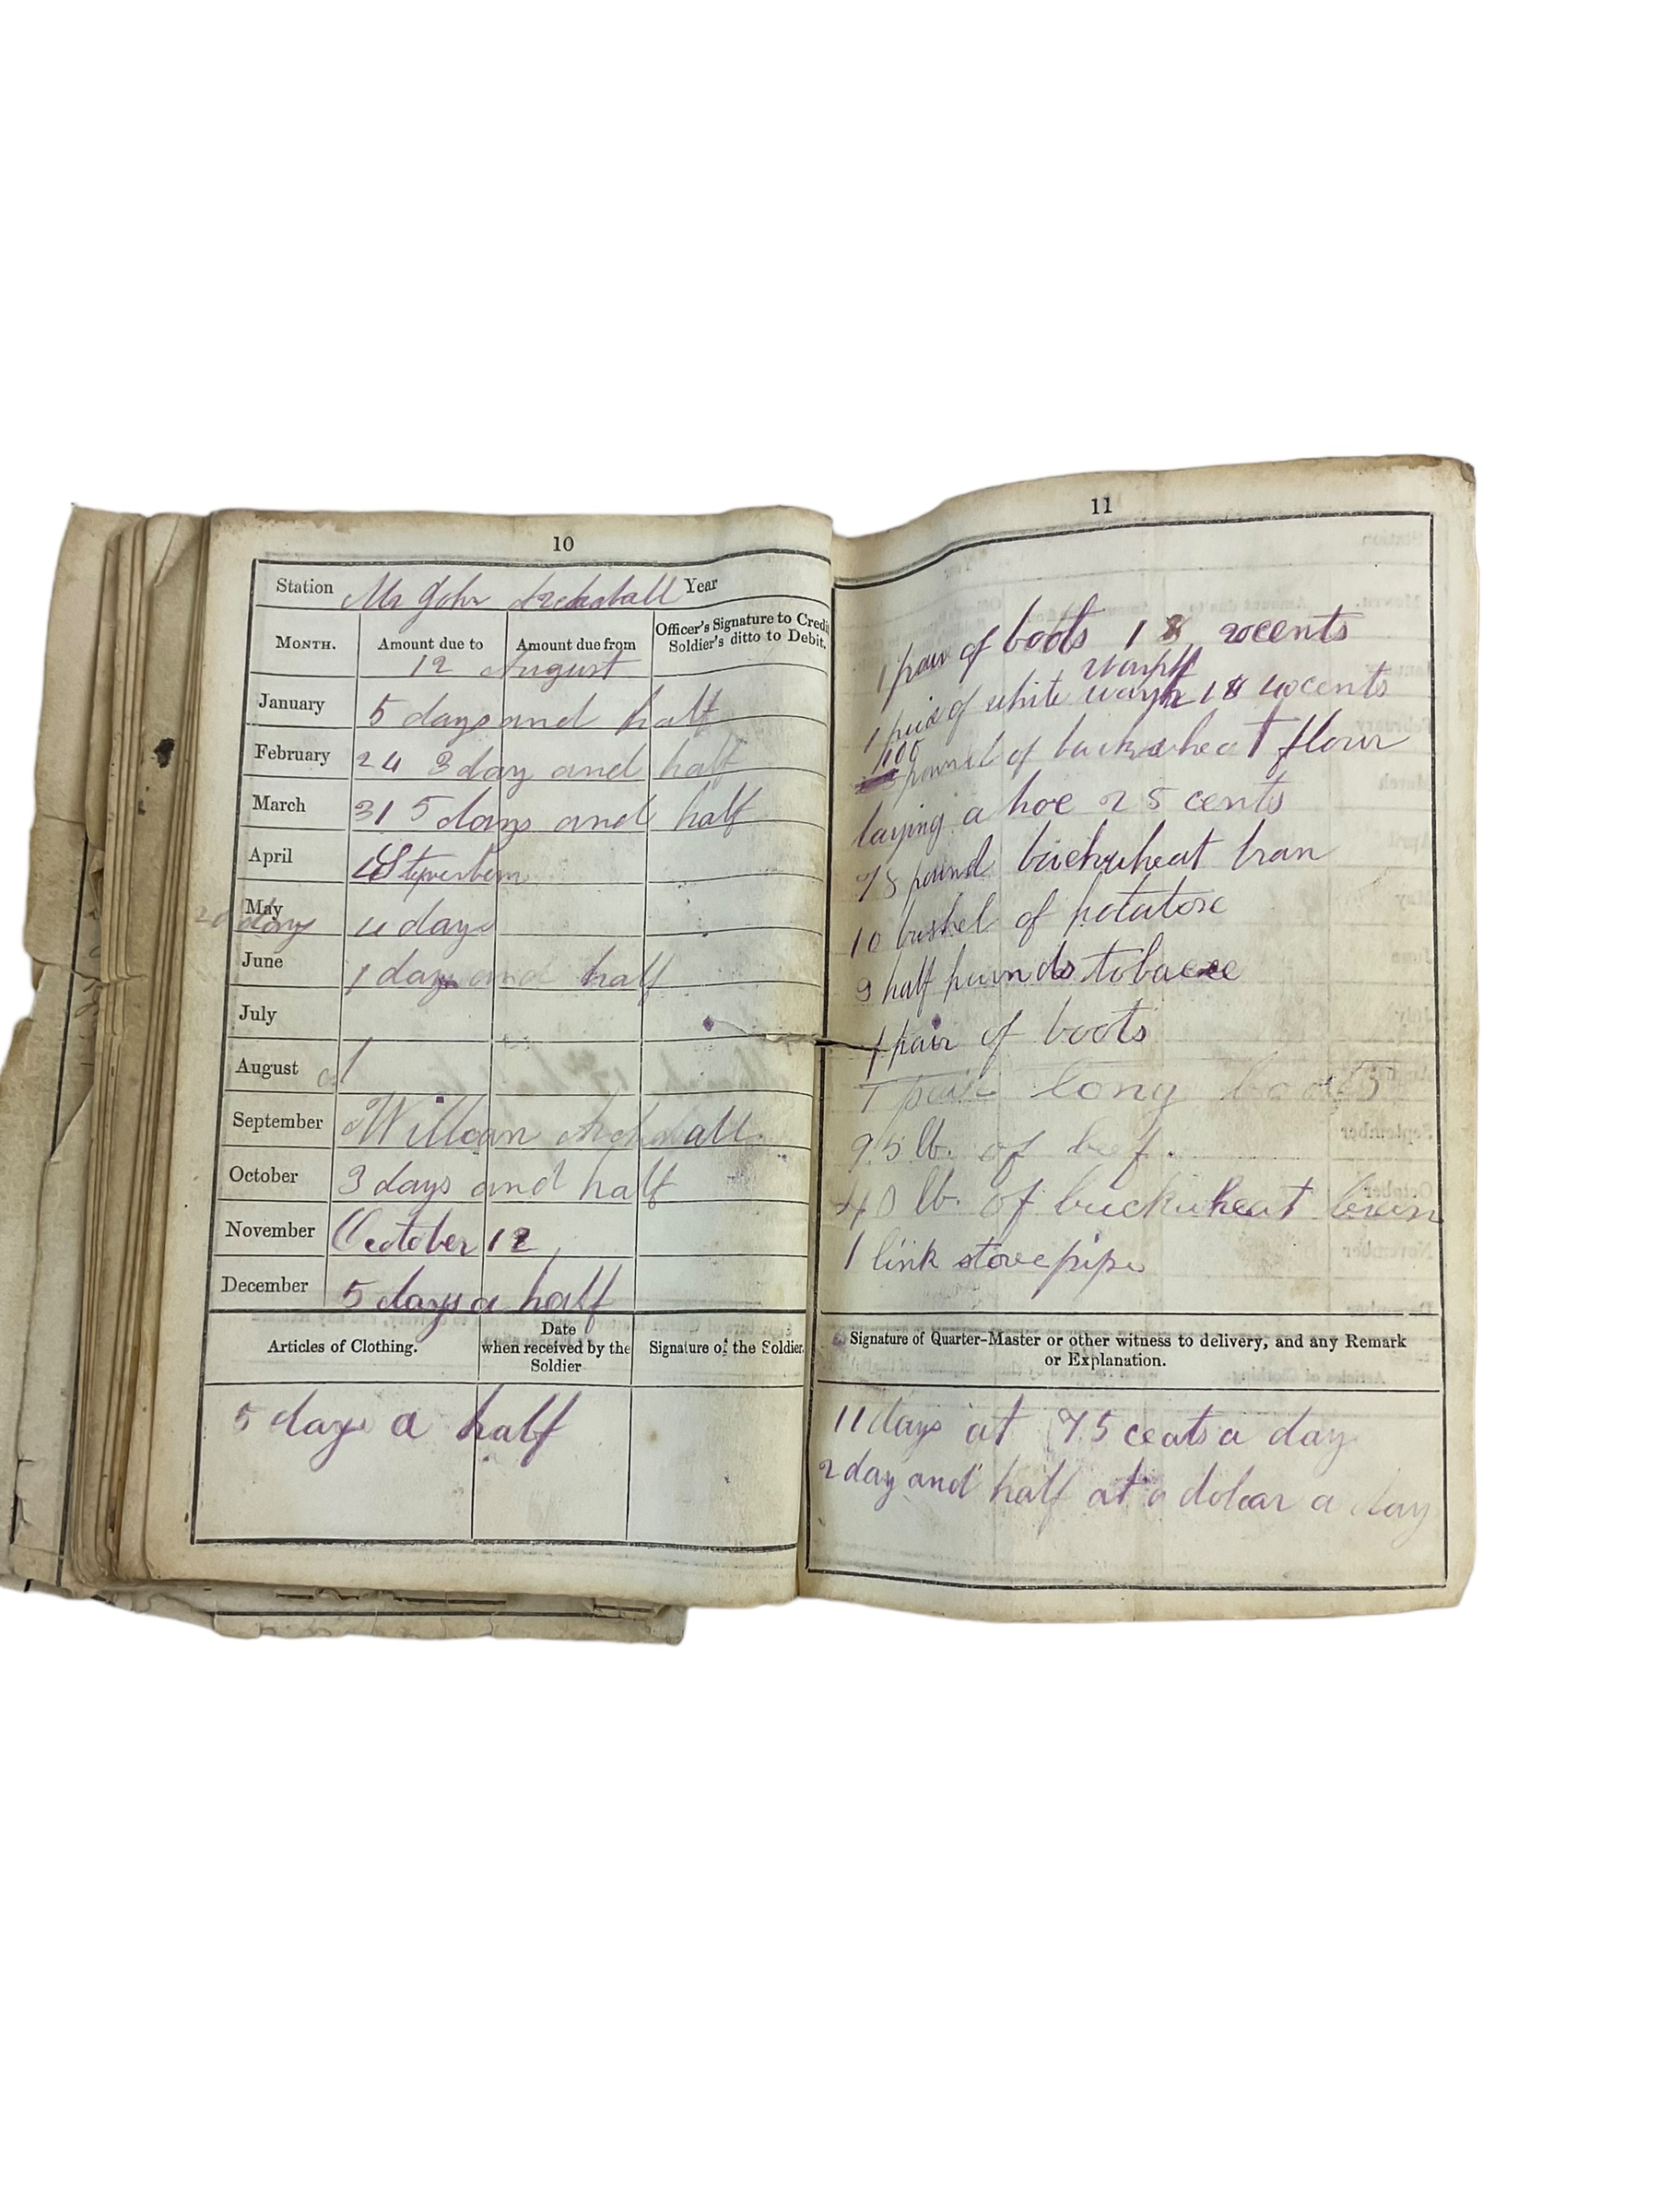 10
Station Mr John Archdall Year
MONTH. Amount due to Amount due from Officer's Signature to Credi Soldier's ditto to Debit.
12 August
January 5 days and half
February 24 3 day and half
March 31 5 days and half
April 4
May 4 days
20 days
June 1 day and half
July
August
September Willoan Archdall
October 3 days and half
November Cectober 12
December 5 days a half
Articles of Clothing. Date when received by the Soldier Signature of the Soldier.
5 days a half
11
1 pair of boots 1 $ 20 cents
1 of white 1 $ 40 cents
100 pound of buckwheat flour
laying a hoe 25 cents
75 pound buckwheat bran
10 bushel of potatose
3 half pounds tobacce
1 pair of boots
1 pair long boots
95 lb. of beef.
40 lb. of buckwheat bran
1 link stove pipe
Signature of Quarter-Master or other witness to delivery, and any Remark
or Explanation.
11 days at 75 ceats a day
2 day and half at a dolear a day